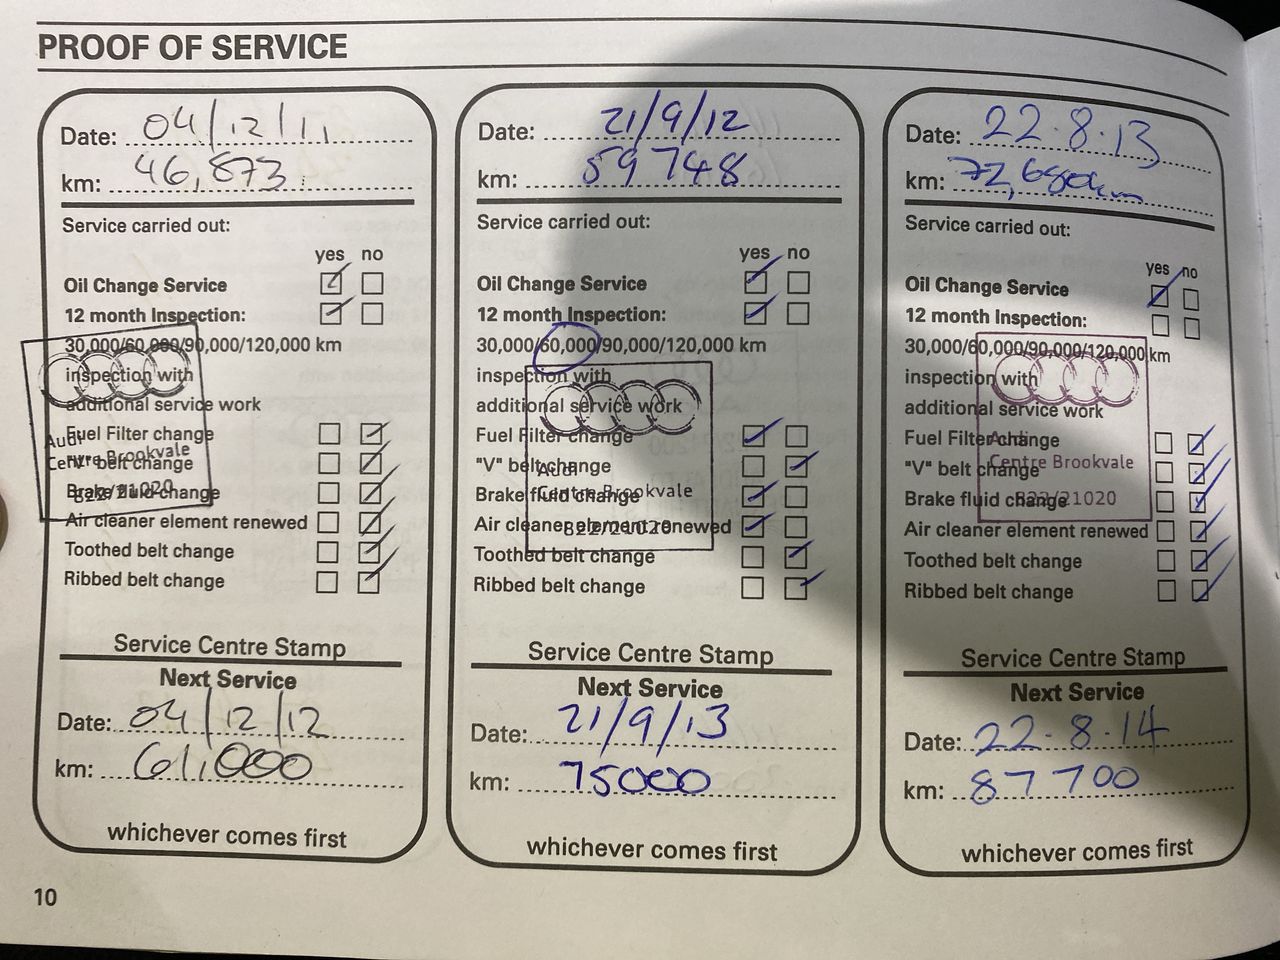 PROOF OF SERVICE
Date: 04/12/11
km: 46,873
Service carried out:
yes no
Oil Change Service
12 month Inspection:
30,000/60,000/90,000/120,000 km
inspection with
additional service work
Fuel Filter change
"V" belt change
Brake fluid change
Air cleaner element renewed
Toothed belt change
Ribbed belt change
Audi
Centre Brookvale
822/21020
Service Centre Stamp
Next Service
Date: 04/12/12
km: 61,000
whichever comes first
Date: 21/9/12
km: 59748
Service carried out:
yes no
Oil Change Service
12 month Inspection:
30,000/60,000/90,000/120,000 km
inspection with
additional service work
Fuel Filter change
"V" belt change
Brake fluid change
Air cleaner element renewed
Toothed belt change
Ribbed belt change
Audi
Centre Brookvale
822/21020
Service Centre Stamp
Next Service
Date: 21/9/13
km: 75000
whichever comes first
Date: 22.8.13
km: 72,680km
Service carried out:
yes no
Oil Change Service
12 month Inspection:
30,000/60,000/90,000/120,000 km
inspection with
additional service work
Fuel Filter change
"V" belt change
Brake fluid change
Air cleaner element renewed
Toothed belt change
Ribbed belt change
Audi
Centre Brookvale
822/21020
Service Centre Stamp
Next Service
Date: 22.8.14
km: 87700
whichever comes first
10